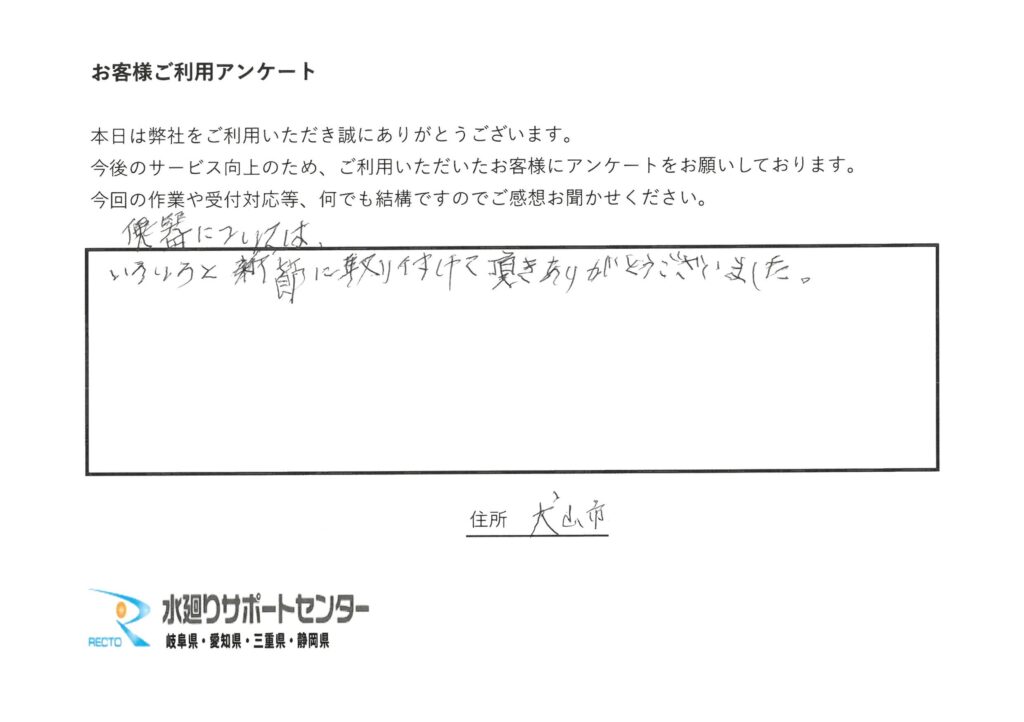 お客様ご利用アンケート
本日は弊社をご利用いただき誠にありがとうございます。
今後のサービス向上のため、ご利用いただいたお客様にアンケートをお願いしております。
今回の作業や受付対応等、何でも結構ですのでご感想お聞かせください。
便器については、
いろいろと 新 に取り付けて頂きありがとうございました。
住所 犬山市
RECTO 水廻りサポートセンター
岐阜県・愛知県・三重県・静岡県